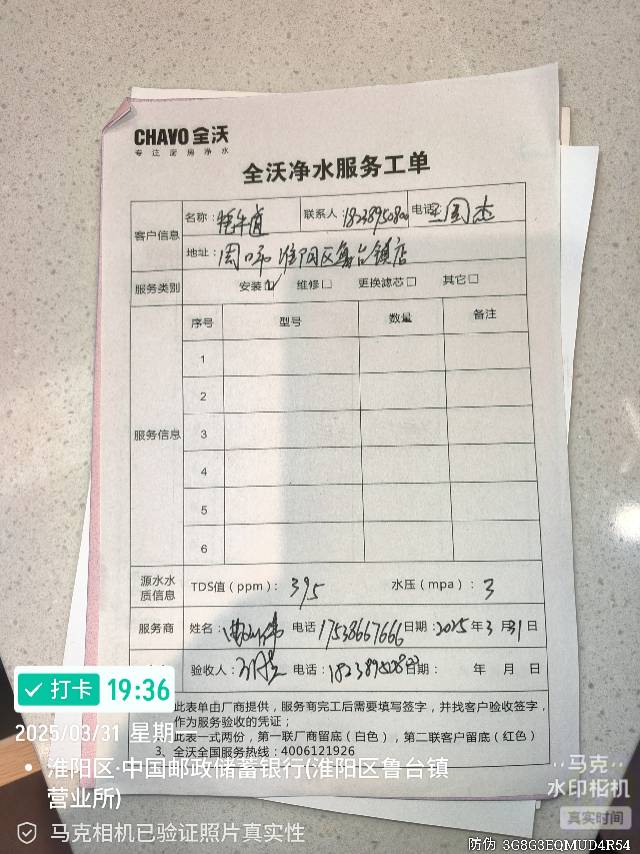 CHAVO 全沃
专注厨房净水
全沃净水服务工单
客户信息
名称：
联系人：18238950800
电话：王国杰
地址：周口 淮阳区鲁台镇店
服务类别
安装☑ 维修□ 更换滤芯□ 其它□
服务信息
序号 型号 数量 备注
1
2
3
4
5
6
源水水质信息
TDS值（ppm）：395 水压（mpa）：3
服务商
姓名： 电话 17538667666 日期：2025年3月31日
验收人： 电话： 日期： 年 月 日
此表单由厂商提供，服务商完工后需要填写签字，并找客户验收签字，
作为服务验收的凭证；
此表一式两份，第一联厂商留底（白色），第二联客户留底（红色）
3、全沃全国服务热线：4006121926
打卡 19:36
2025/03/31 星期一
淮阳区·中国邮政储蓄银行(淮阳区鲁台镇
营业所)
马克相机已验证照片真实性
马克
水印相机
真实时间
防伪 3G8G3EQMUD4R54